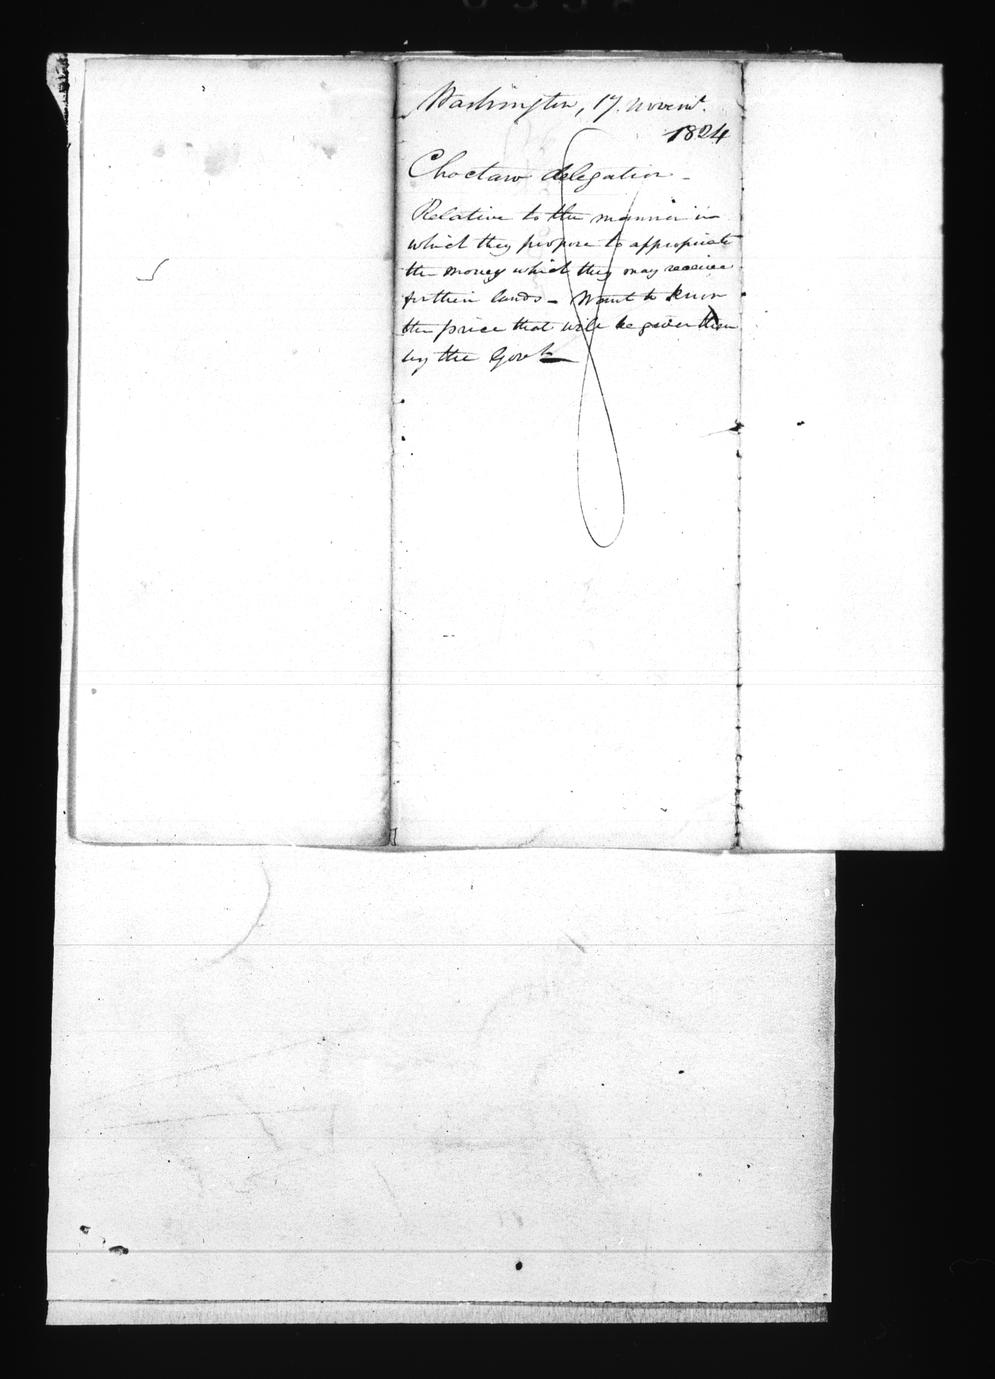 Washington, 17. Novemr.
1824
Choctaw delegation -
Relative to the manner in
which they propose to appropriate
the money which they may receive
for their lands - Want to know
the price that will be given them
by the Govt.